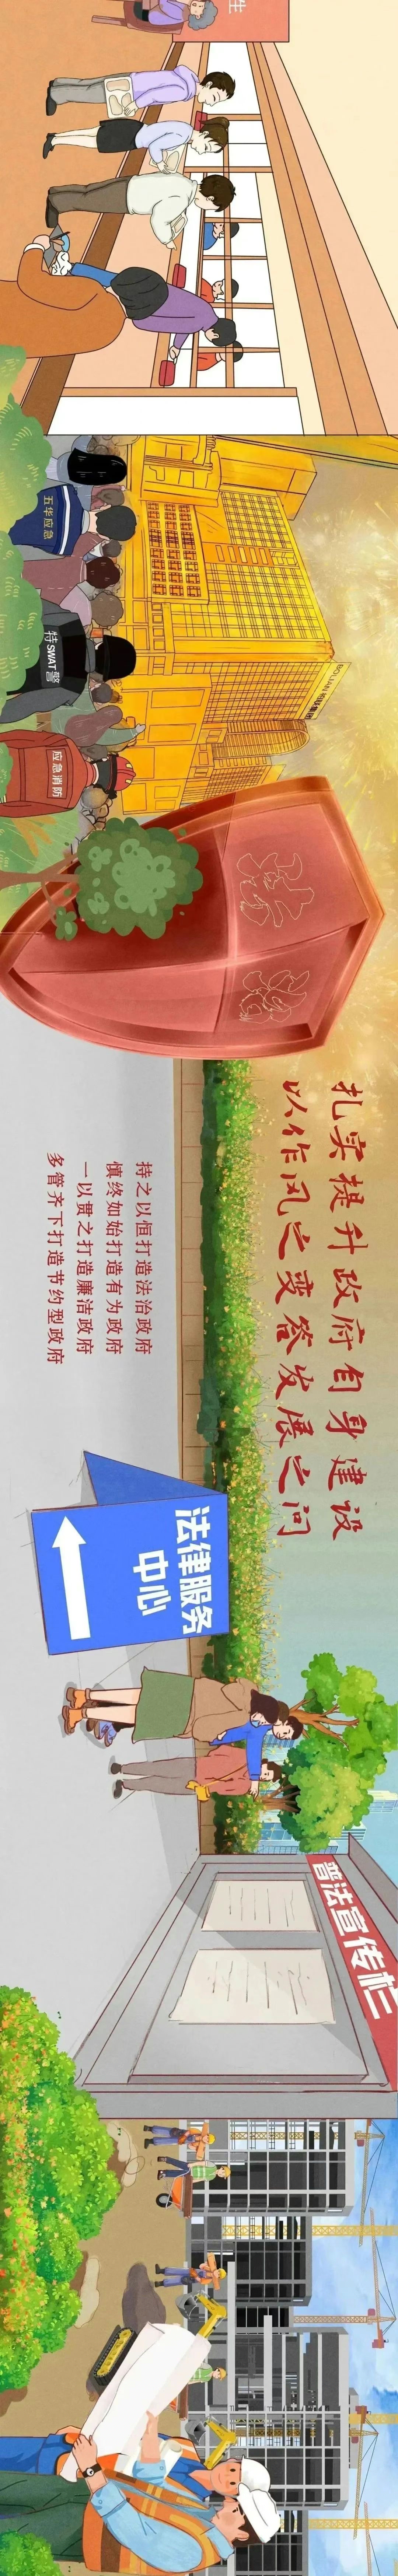 生
五华应急
特SWAT警
应急消防
BOLIAN
扎实提升政府自身建设
以作风之变答发展之问
持之以恒打造法治政府
慎终如始打造有为政府
一以贯之打造廉洁政府
多管齐下打造节约型政府
法律服务
中心
普法宣传栏